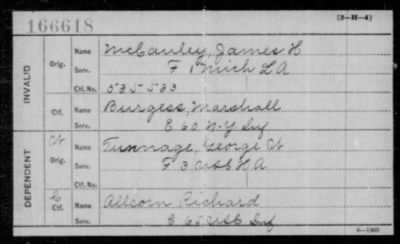 166618
(3-H-4)
INVALID
Orig.
Name McCauley, James H.
Serv. F 1 Mich L A
Ctf. No. 535533
Ctf.
Name Burgess, Marshall
Serv. E 60 N.Y. Inf
DEPENDENT
W
Orig.
Name Tunnage, George W
Serv. F 3 USC H A
Ctf. No.
C
Ctf.
Name Allcorn Richard
Serv. E 65 USC Inf